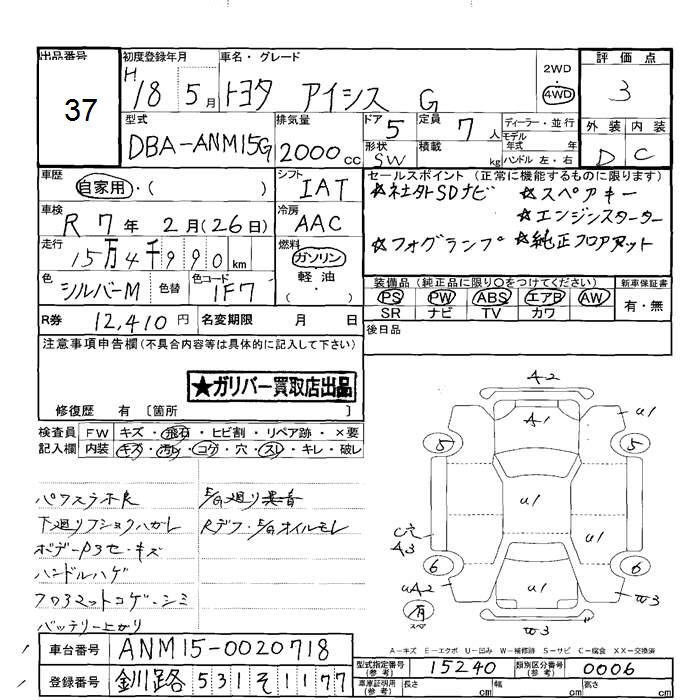 出品番号 初度登録年月 車名・グレード 評価点
37 H 18 5月 トヨタ アイシス G 2WD 4WD 3
型式 排気量 ドア 定員 ディーラー・並行 外装 内装
DBA-ANM15G 2000cc 5 7人 モデル年式 年式 D C
形状 SW 積載 kg ハンドル 左・右
車歴 自家用・( ) シフト IAT セールスポイント (正常に機能するものに限ります)
★社外SDナビ ★スペアキー
車検 R7年 2月(26日) 冷房 AAC ★エンジンスターター
走行 15万4千990km 燃料 ガソリン 軽油 ( ) ★フォグランプ ★純正フロアマット
色 シルバーM 色替 色コード 1F7 装備品 (純正品に限り○をつけてください) 新車保証書
PS PW ABS エアB AW 有・無
SR ナビ TV カワ
R券 12,410円 名変期限 月 日 後日品
注意事項申告欄(不具合内容等は具体的に記入して下さい)
★ガリバー買取店出品
修復歴 有 〔箇所 〕
検査員 FW キズ・飛石・ヒビ割・リペア跡・×要
記入欄 内装 キズ・汚れ・コゲ・穴・スレ・キレ・破レ
パワステ不良 E/G廻り異音
下廻りフショクハガレ Rデフ・E/Gオイルモレ
ボデー
キズ
ハンドルハゲ
フロアマットコゲ・シミ
バッテリー上がり
A2
A1 U1
5 5
U1
A3 U1
6 6
UA2 U1
有 W3
スペ W3
A-キズ E-エクボ U-凹み W-補修跡 S-サビ C-腐食 XX-交換済
車台番号 ANM15-0020718
型式指定番号(参考) 15240 類別区分番号(参考) 0006
登録番号 釧路 531 そ 1177
車庫証明用(参考) 長さ cm 幅 cm 高さ cm